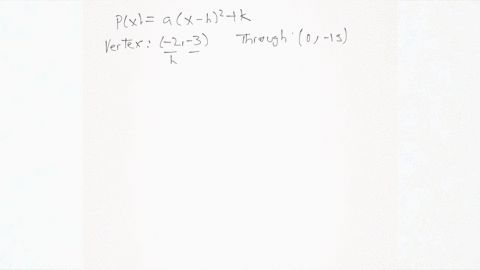 P(x) = a(x-h)²+k
Vertex: (-2,-3) Through: (0,-15)
h